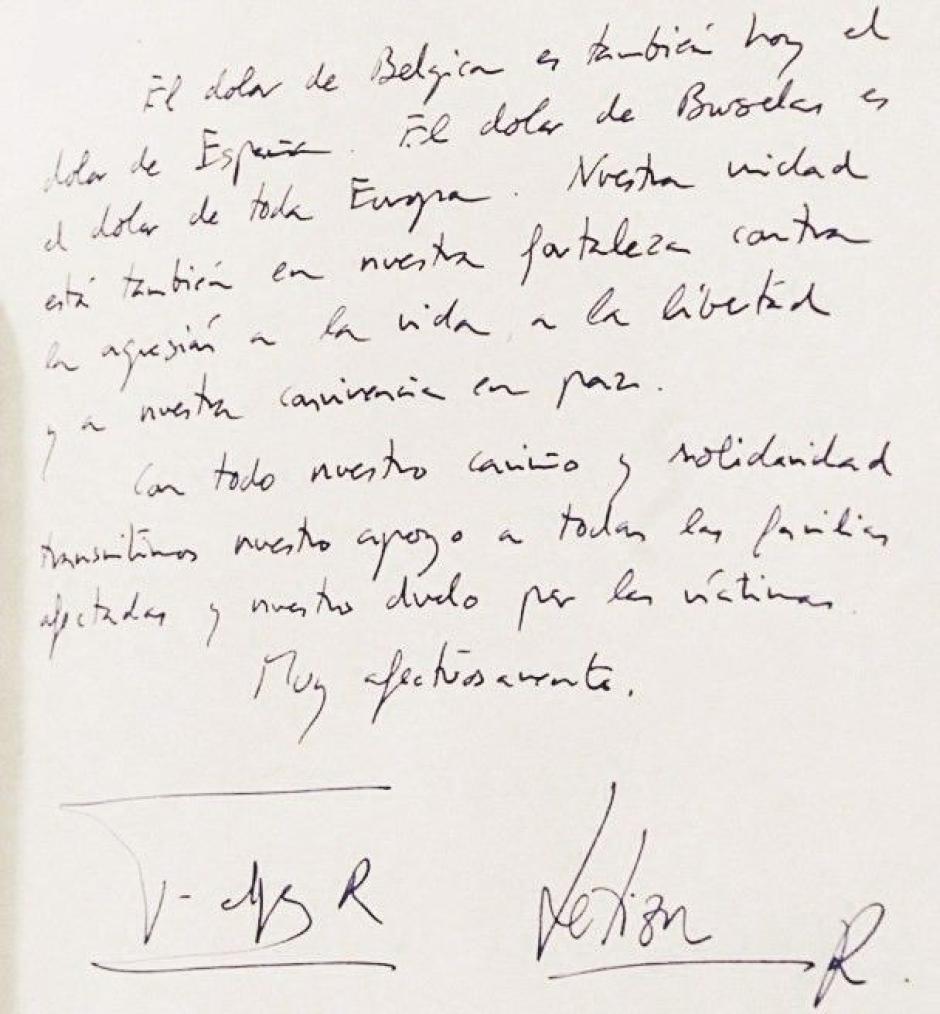 El dolor de Belgica es también hoy el
dolor de España. El dolor de Bruselas es
el dolor de toda Europa. Nuestra unidad
está también en nuestra fortaleza contra
la agresión a la vida, a la libertad
y a nuestra convivencia en paz.
Con todo nuestro cariño y solidaridad
transmitimos nuestro apoyo a todas las familias
afectadas y nuestro duelo por las víctimas.
Muy afectuosamente.
Felipe R Letizia R.